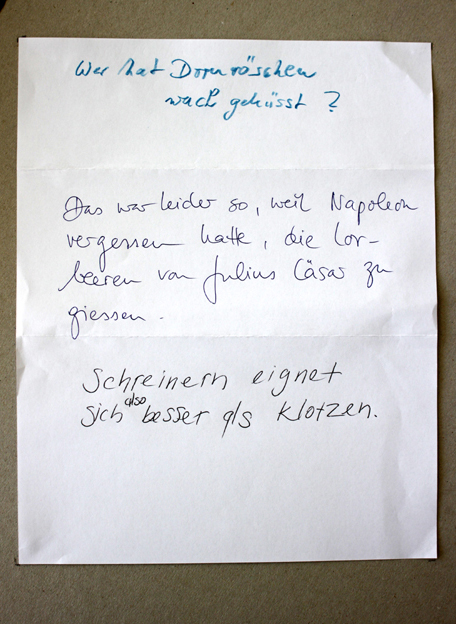 Wer hat Dornrösschen
wach geküsst ?
Das war leider so, weil Napoleon
vergessen hatte, die Lor-
beeren von Julius Cäsar zu
giessen.
Schreinern eignet
sich also besser als klotzen.